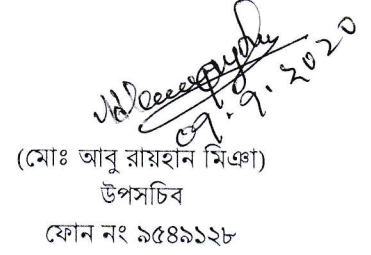 ০৭.৭.২০২০
(মোঃ আবু রায়হান মিঞা)
উপসচিব
ফোন নং ৯৫৪৯১২৮